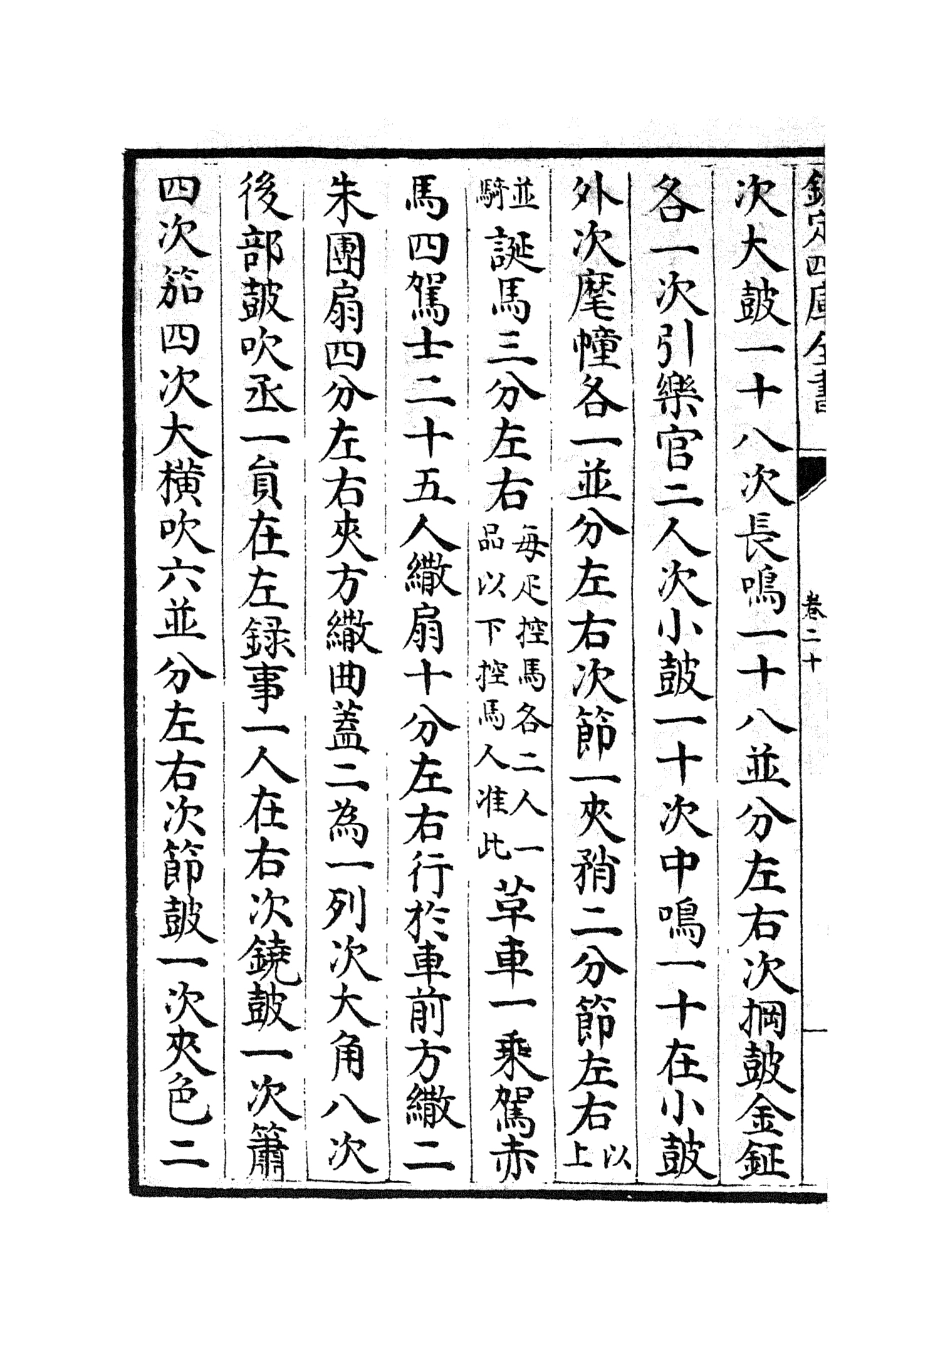 欽定四庫全書
卷二十
次大鼓一十八次長鳴一十八並分左右次掆鼓金鉦
各一次引樂官二人次小鼓一十次中鳴一十在小鼓
外次麾幢各一並分左右次節一夾矟二分節左右以上
並騎誕馬三分左右每疋控馬各二人一品以下控馬人准此革車一乘駕赤
馬四駕士二十五人繖扇十分左右行於車前方繖二
朱團扇四分左右夾方繖曲蓋二為一列次大角八次
後部鼓吹丞一員在左録事一人在右次鐃鼓一次簫
四次笳四次大橫吹六並分左右次節鼓一次夾色二